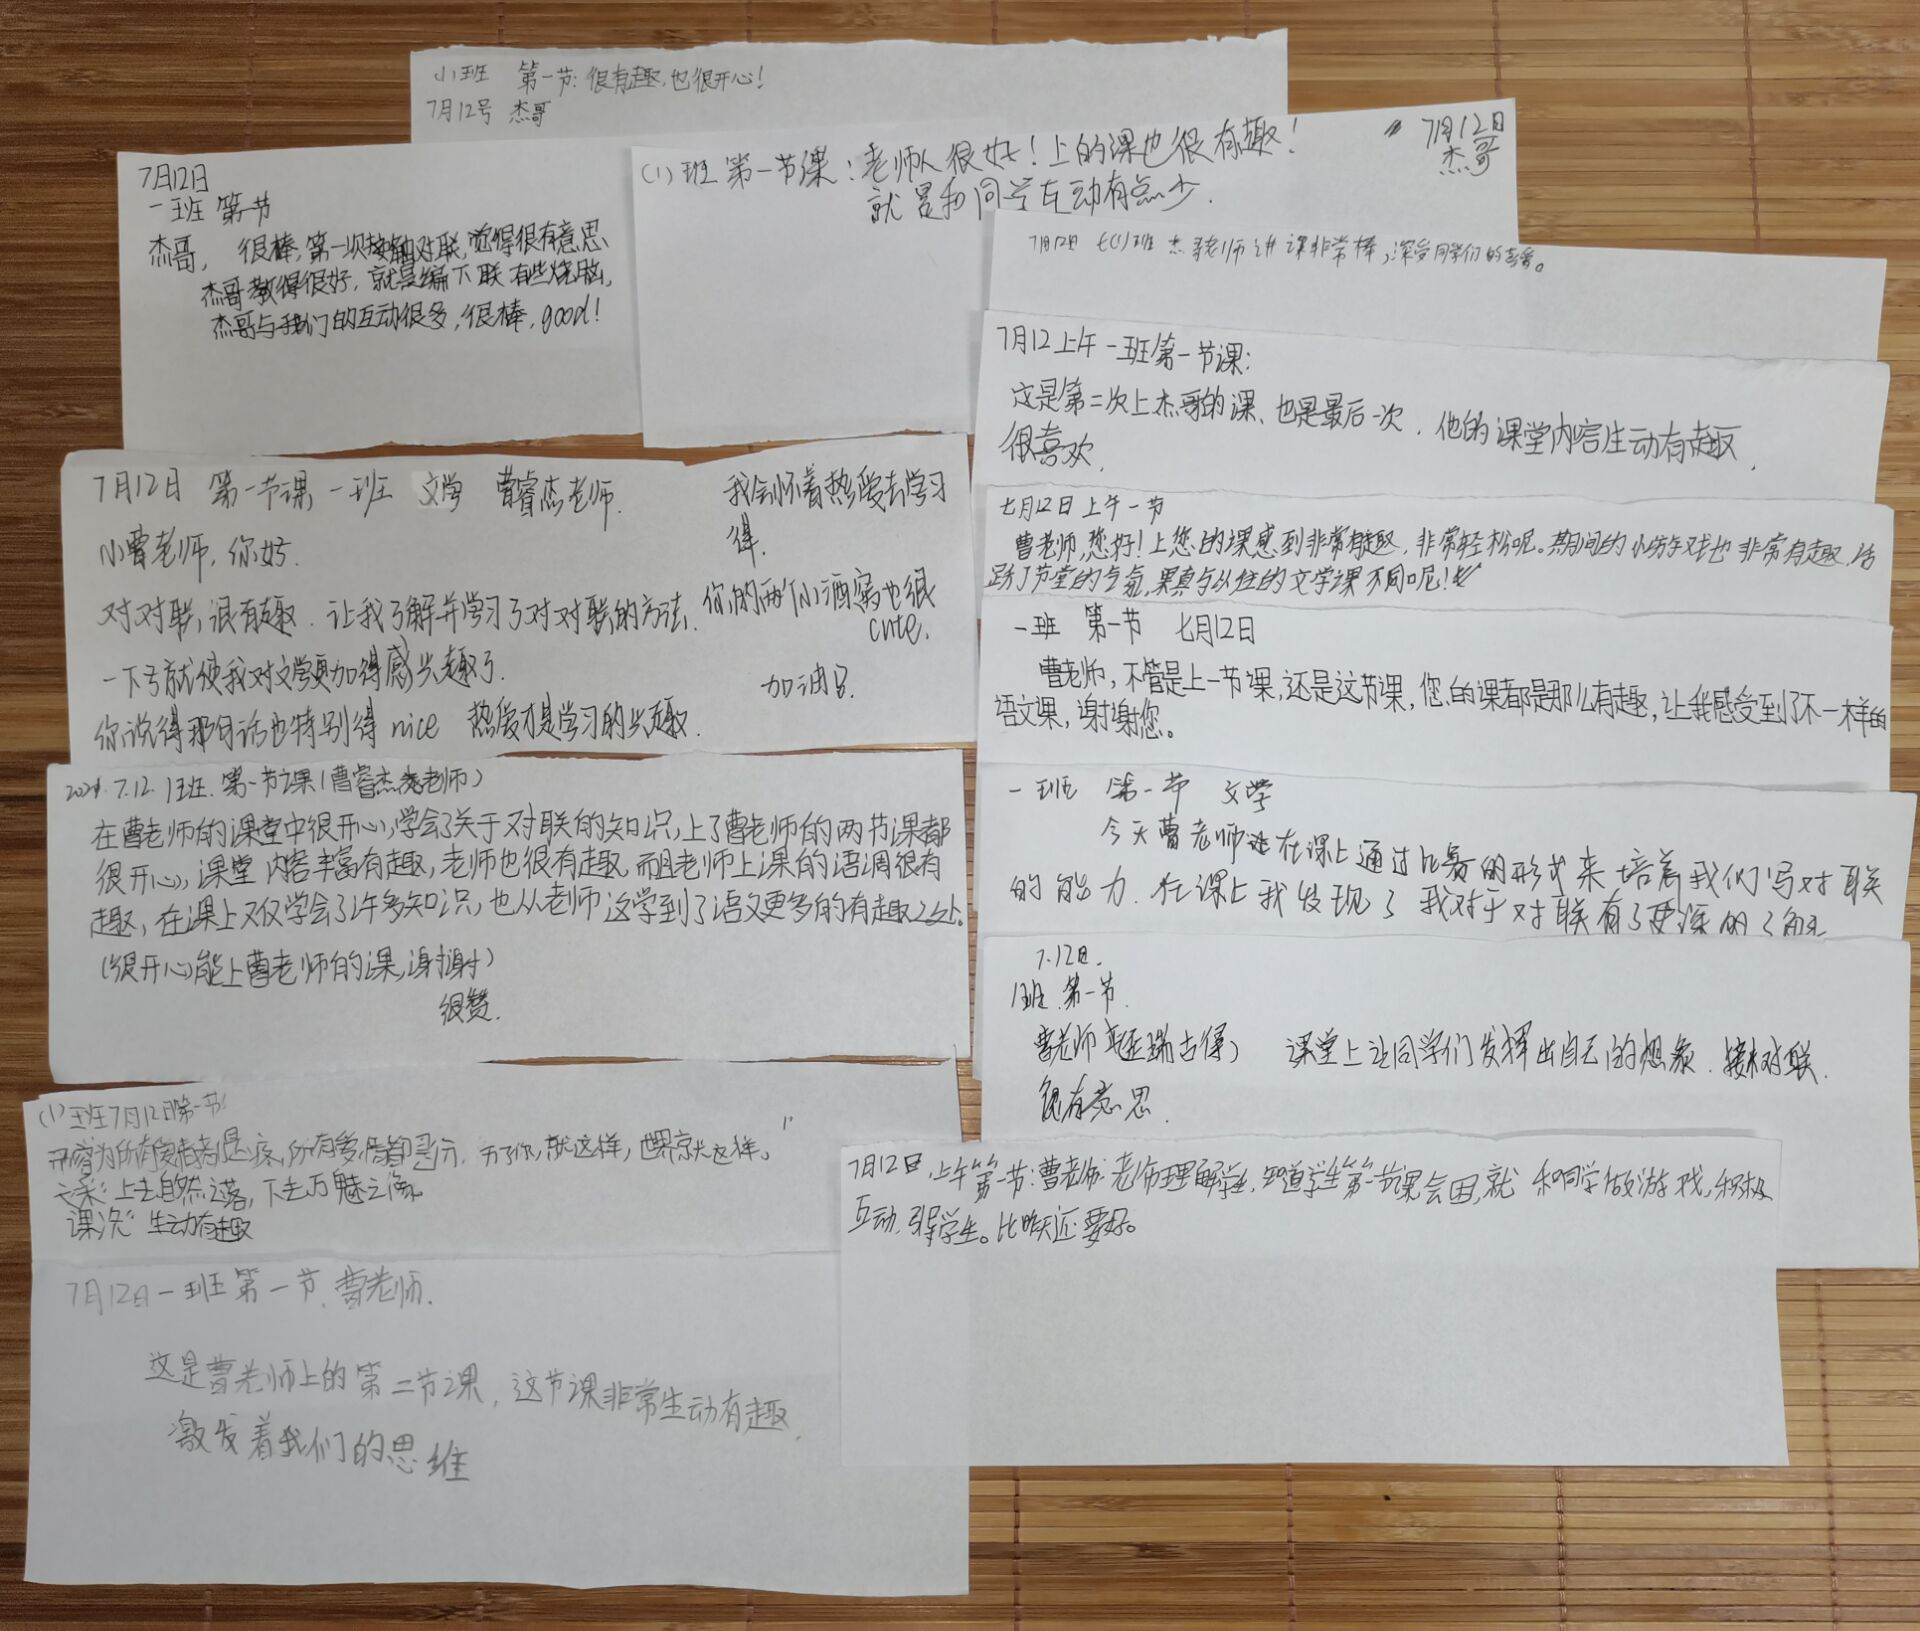 小班 第一节：很有趣，也很开心！
7月12号 杰哥
7月12日
一班 第一节
杰哥， 很棒，第一次接触对联，觉得很有意思、
杰哥教得很好，就是编下联有些烧脑，
杰哥与我们的互动很多，很棒，good！
(1)班 第一节课：老师人很好！上的课也很有趣！
就是和同学互动有点少．
7月12日
杰哥
7月12日 七(1)班 杰哥老师讲课非常棒，深受同学们的喜爱。
7月12上午一班第一节课：
这是第二次上杰哥的课、也是最后一次．他的课堂内容生动有趣
很喜欢．
7月12日 第一节课 一班 文学 曹睿杰老师．
小曹老师，你好．
对对联，很有趣．让我了解并学习了对对联的方法．
一下子就使我对文学更加得感兴趣了．
你说得那句话也特别得nice 热爱才是学习的兴趣．
我会怀着热爱去学习
得．
你的两个小酒窝也很
cute．
加油呂．
七月12日上午一节
曹老师，您好！上您的课感到非常有趣，非常轻松呢。期间的小游戏也非常有趣，活
跃了节堂的气氛，果真与以往的文学课不同呢！
一班 第一节 七月12日
曹老师，不管是上一节课，还是这节课，您的课都是那么有趣，让我感受到了不一样的
语文课，谢谢您。
2021.7.12. 1班．第一节课（曹睿杰老师）
在曹老师的课堂中很开心，学会了关于对联的知识，上了曹老师的两节课都
很开心，课堂内容丰富有趣，老师也很有趣，而且老师上课的语调很有
趣，在课上不仅学会了许多知识，也从老师这学到了语文更多的有趣之处．
（很开心能上曹老师的课，谢谢）
很赞．
一班 第一节 文学
今天曹老师在课上通过比赛的形式来培养我们写对联
的能力．在课上我发现了我对于对联有了更深的了解
7.12日．
1班 第一节．
曹老师 课堂上让同学们发挥出自己的想象．接对联．
很有意思．
(1)班7月12日第一节
上去自然之落，下去万魅之
生动有趣
7月12日一班第一节．曹老师．
这是曹老师上的第二节课，这节课非常生动有趣，
激发着我们的思维
7月12日，上午第一节：曹老师：老师理解学生，知道学生第一节课会困，就和同学做游戏，积极
互动，引导学生。比昨天还要好。